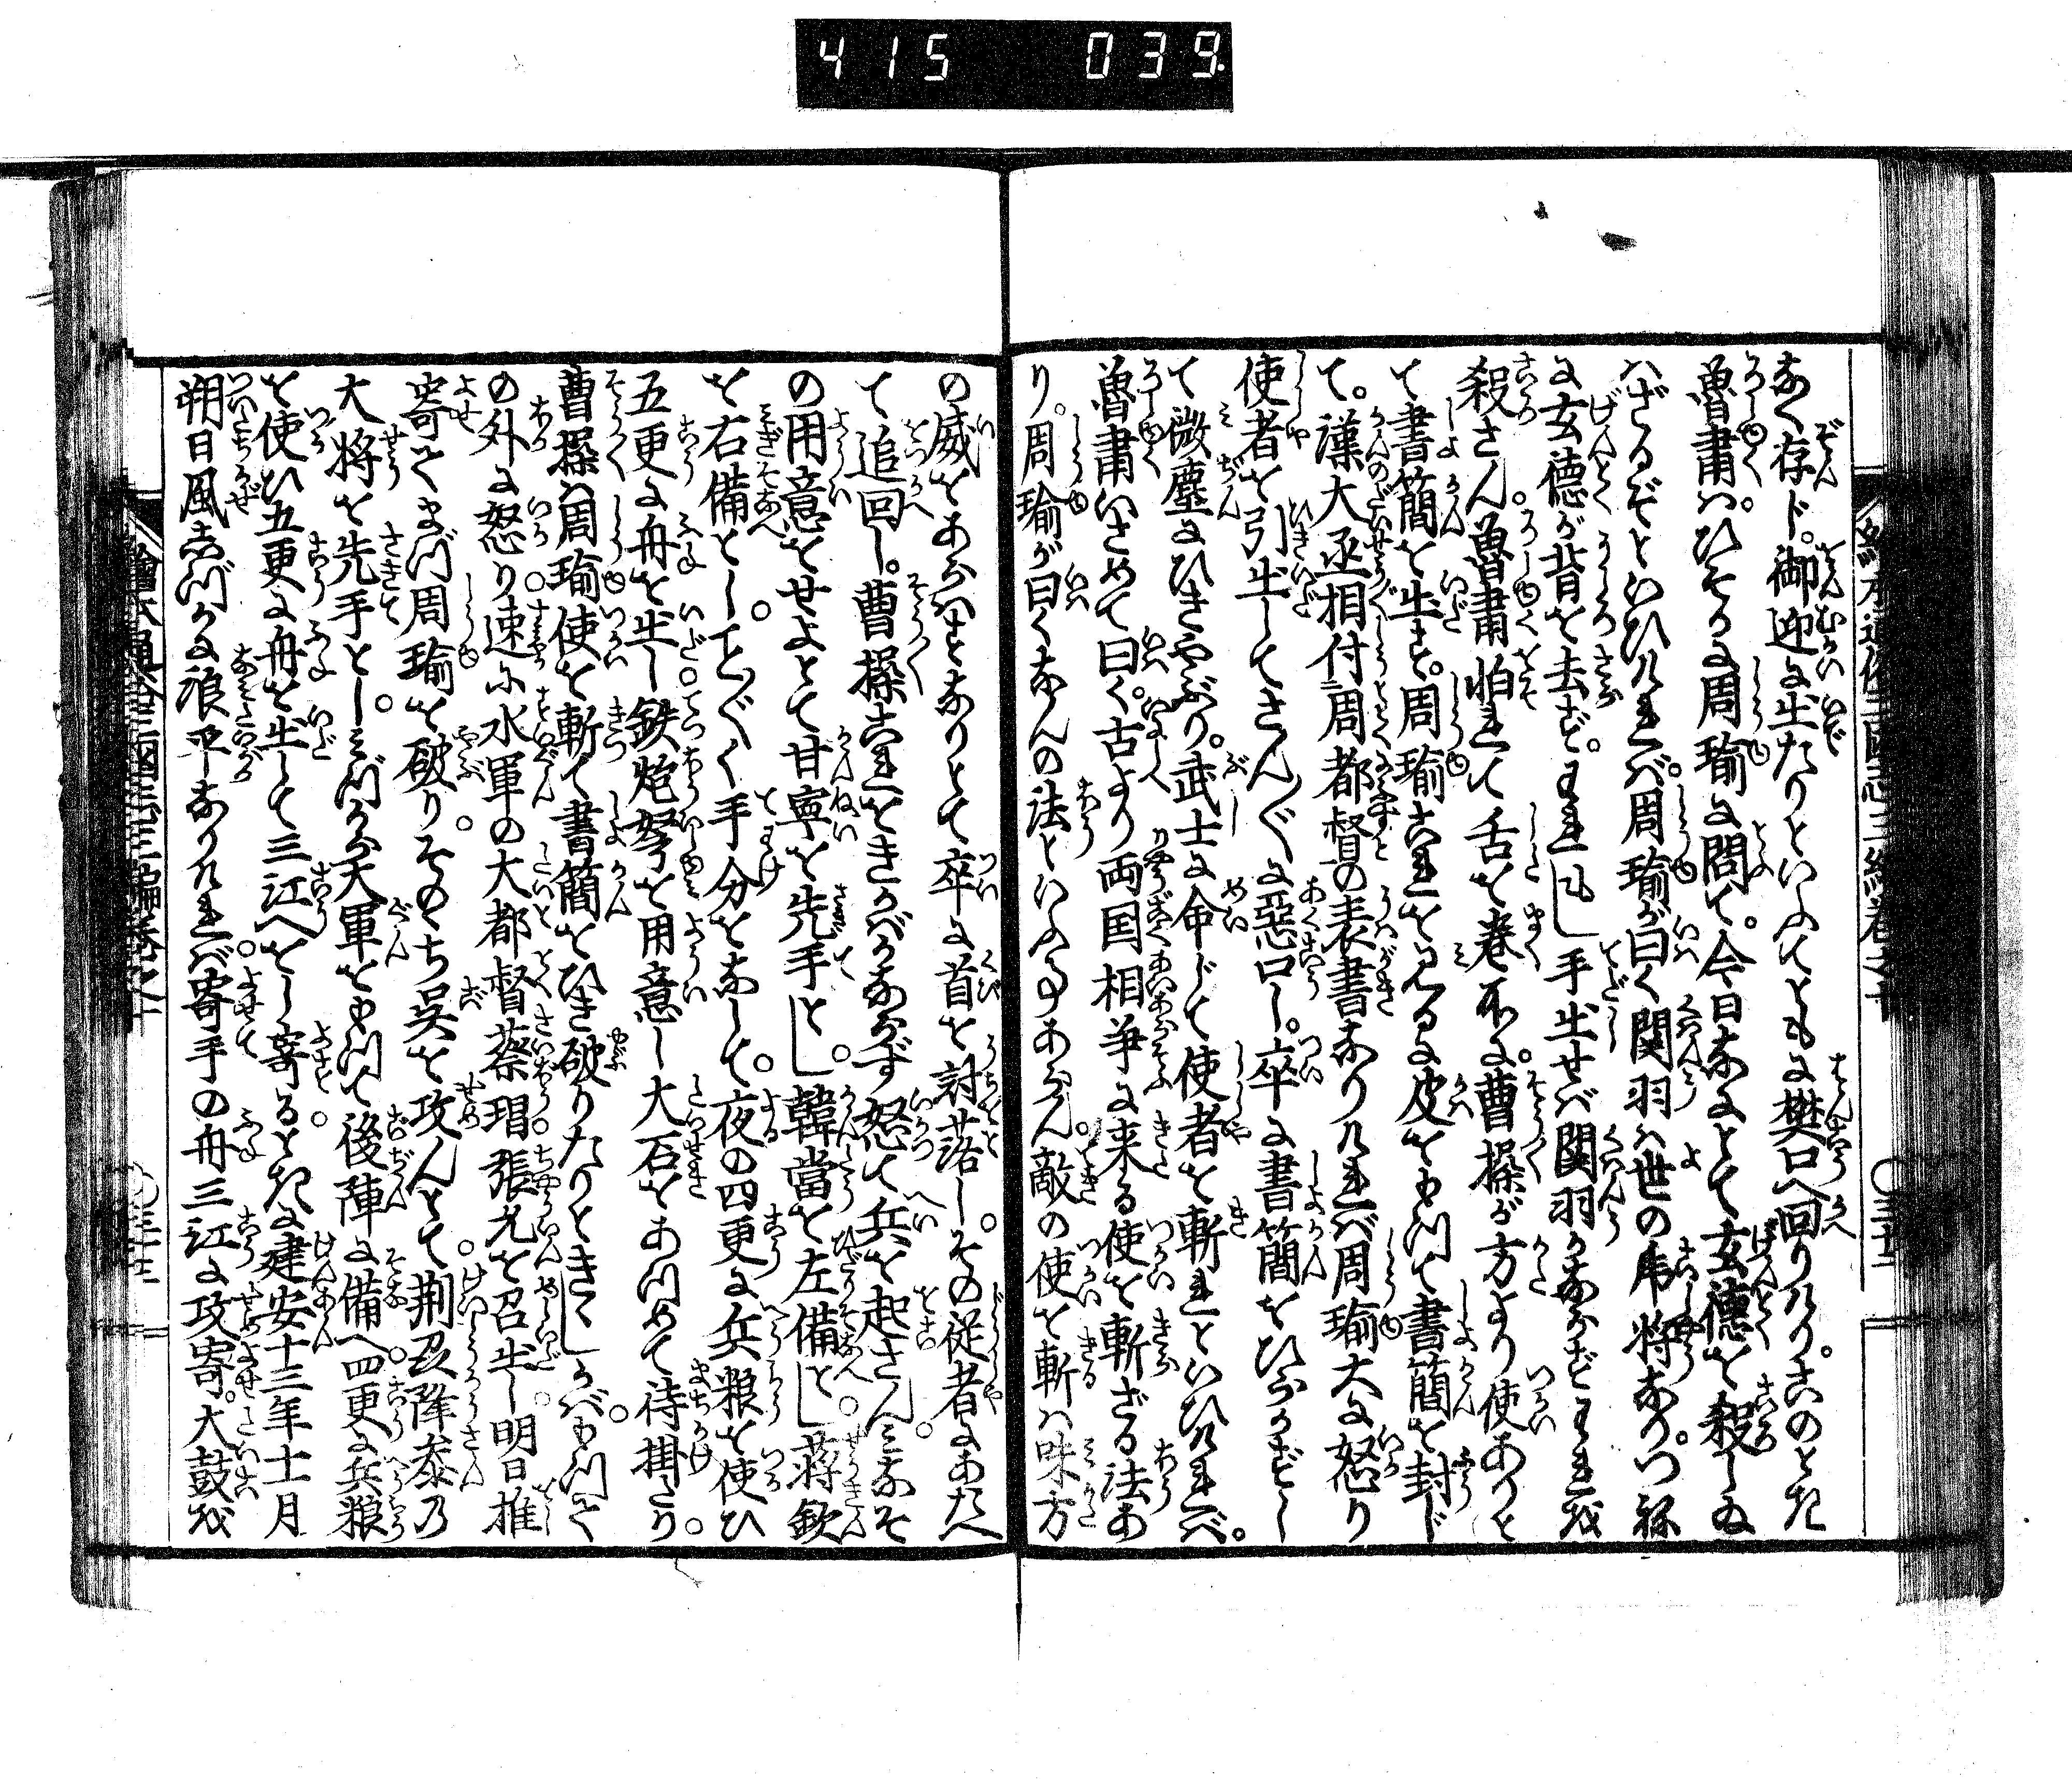 415 039.
なく存ド。御迎に出たりといふてともに樊口へ回りけり。このとき
魯肅ハ。ひそかに周瑜に問て。今日なにとて玄德を殺し給
ハざるぞといひければ。周瑜が曰く関羽ハ世の虎将なり。つね
に玄德が背を去ず。われもし手出せバ関羽かならずわれを
殺さん。魯肅怕れて舌を巻ける。曹操が方より使ありと
て書簡を出す。周瑜これをみるに皮をもつて書簡を封じ
て。漢大丞相付周都督の表書なりければ周瑜大に怒り
使者を引出してさんざんに惡口し。卒に書簡をひらかずし
て微塵にひきやぶり。武士に命じて使者を斬れといひければ。
魯肅いさめて曰く。古より両国相争に来る使を斬ざる法あ
り。周瑜が曰くなんの法といふ事あらん。敵の使を斬ハ味方
の威をあらハすなりとて卒に首を討落し。その従者にあたへ
て追回し。曹操これをきかばかならず怒て兵を起さんみなそ
の用意をせよとて甘寧を先手とし。韓當を左備とし。蒋欽
を右備とし。ことごとく手分をなして。夜の四更に兵粮を使ひ
五更に舟を出し鉄炮弩を用意し大石をあつめて待掛たり。
曹操ハ周瑜使を斬て書簡をひき破りたりときゝしかバ。もつて
の外に怒り。速に水軍の大都督蔡瑁。張允を召出し。明日推
寄てまづ周瑜を破り。そのゝち吴を攻んとて。荆及降参乃
大将を先手とし。みづから大軍をもつて後陣に備へ。四更に兵粮
を使ひ五更に舟を出して三江へをし寄る。ときに建安十三年十一月
朔日風しづかに浪平なりければ。寄手の舟三江に攻寄。大鼓を